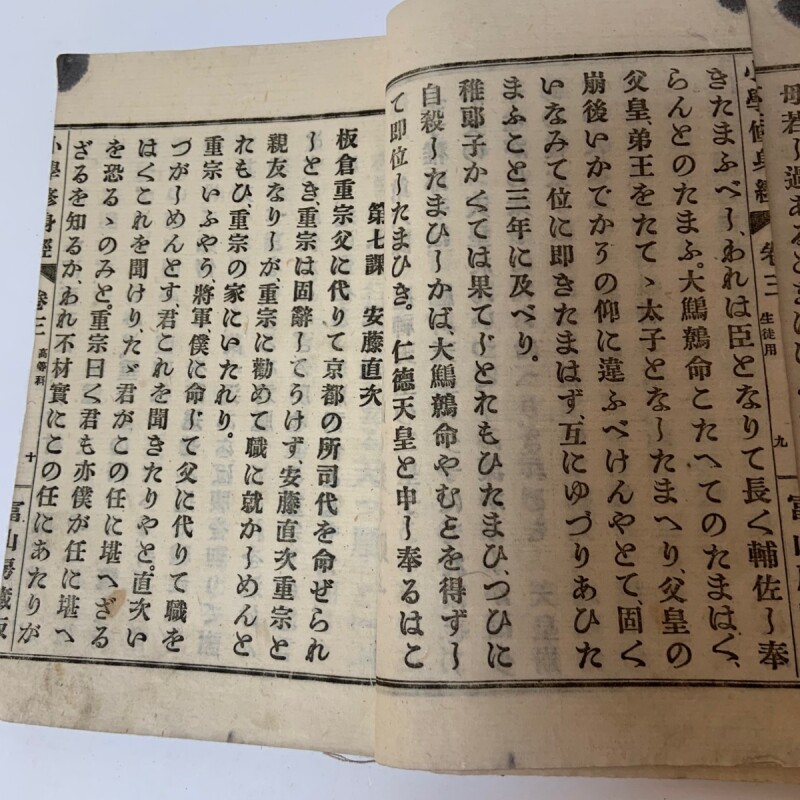 母若し過あるときは
小學修身經 卷三 生徒用 九 冨山房
きたまふべし、われは臣となりて長く輔佐し奉
らんとのたまふ。大鷦鷯命こたへてのたまはく、
父皇、弟王をたてゝ太子となしたまへり、父皇の
崩後いかでかうの仰に違ふべけんやとて、固く
いなみて位に即きたまはず、互にゆづりあひた
まふこと三年に及べり。
稚郎子かくては果てじとおもひたまひ、つひに
自殺したまひしかば、大鷦鷯命やむとを得ずし
て即位したまひき。仁德天皇と申し奉るはこ
第七課 安藤直次
板倉重宗父に代りて京都の所司代を命ぜられ
しとき、重宗は固辭してうけず、安藤直次重宗と
親友なりしが、重宗に勸めて職に就かしめんと
おもひ、重宗の家にいたれり。
重宗いふやう、將軍、僕に命じて父に代りて職を
つがしめんとす、君これを聞きたりやと。直次い
はくこれを聞けり、たゞ君がこの任に堪へざる
を恐るゝのみと。重宗曰く君も亦僕が任に堪へ
ざるを知るか、われ不材實にこの任にあたりが
小學修身經 卷三 高等科 十 冨山房藏版